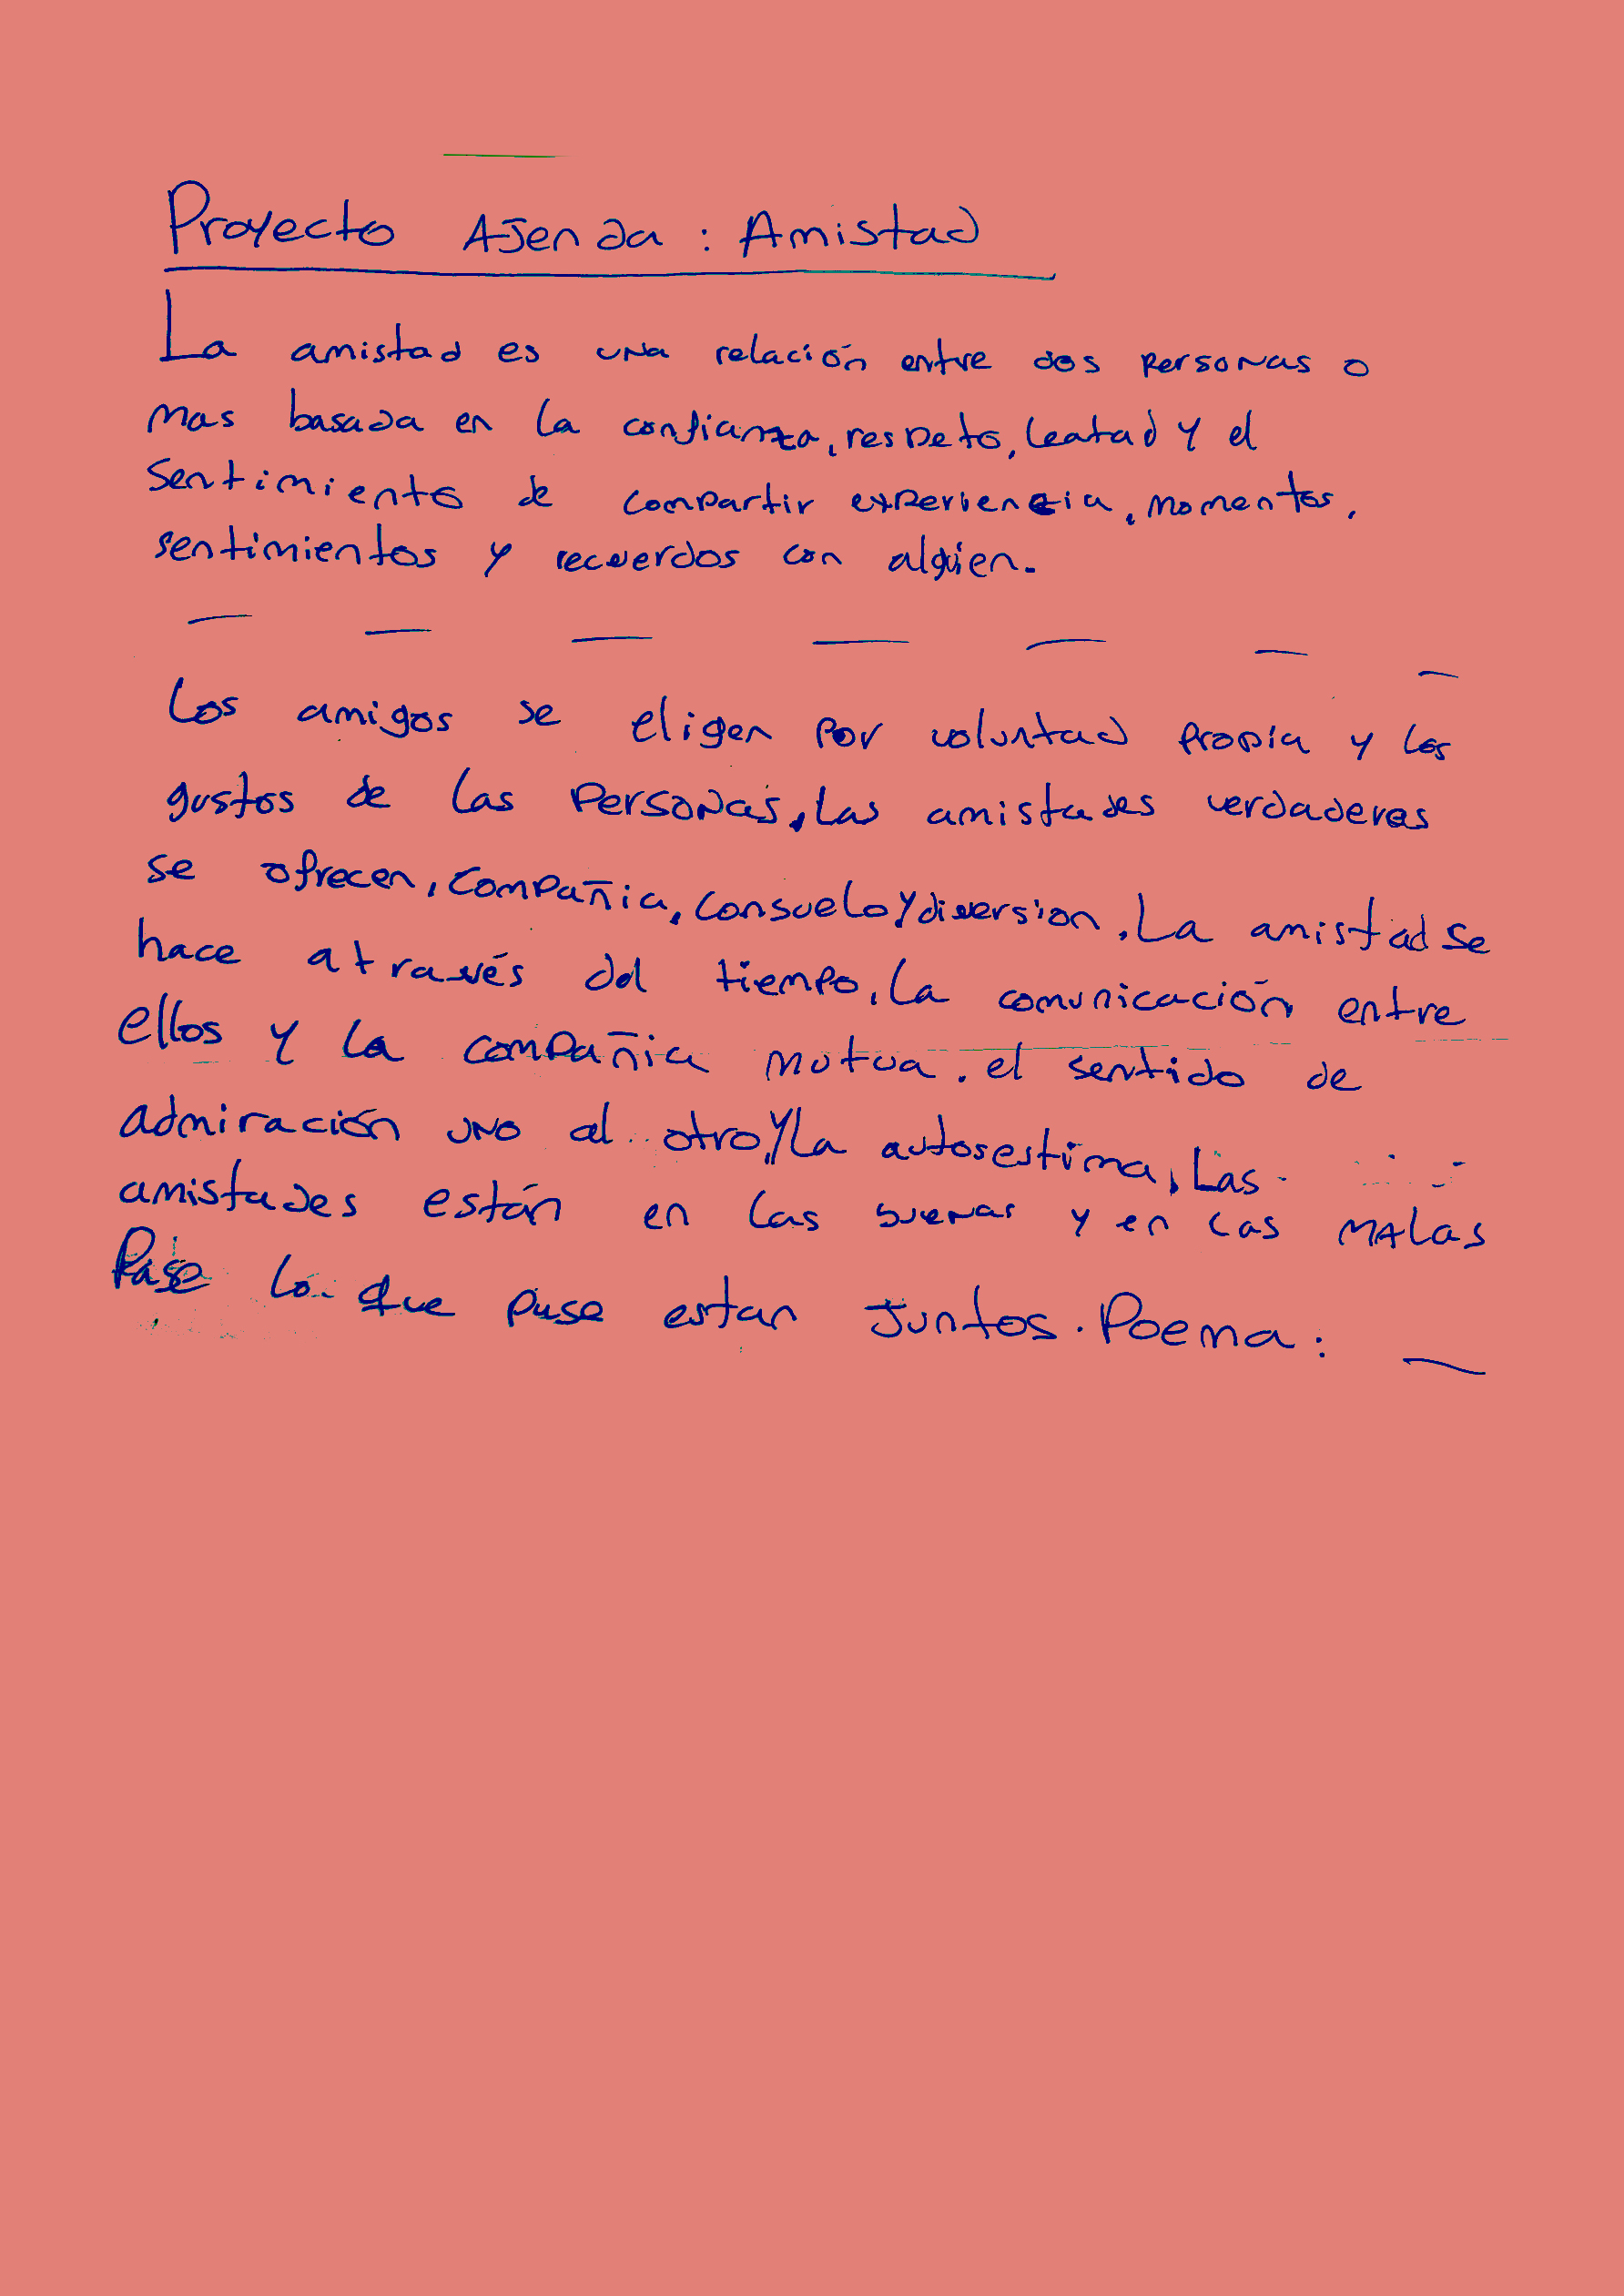 Proyecto AJenda : Amistad
La amistad es una relación entre dos personas o
mas basada en la confianza, respeto, leatad y el
sentimiento de compartir experiencia, momentos,
sentimientos y recuerdos con alguien.
Los amigos se eligen por voluntad propia y los
gustos de las Personas, las amistades verdaderas
se ofrecen, compañia, consuelo y diversion. La amistad se
hace através del tiempo, la comunicación entre
ellos y la compañia mutua. el sentido de
admiración uno al otro, y la autosestima, Las
amistades están en las buenas y en las malas
Pase lo que pase estan Juntos. Poema: